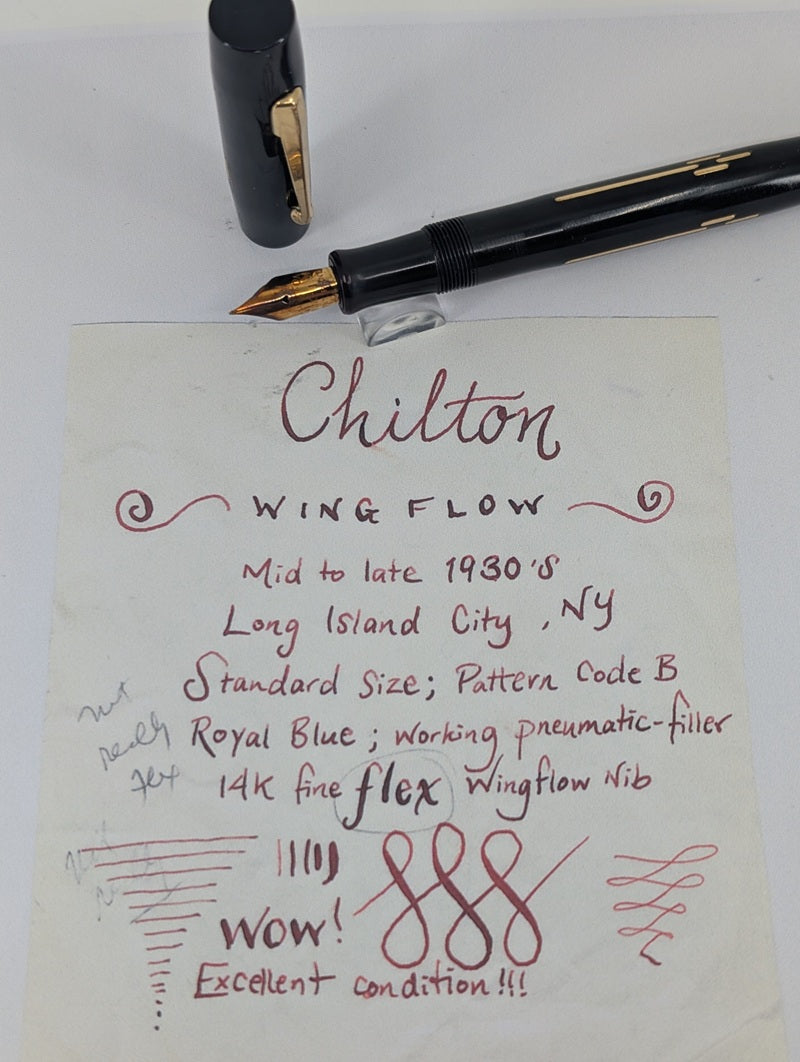 Chilton
WING FLOW
Mid to late 1930's
Long Island City, NY
Standard Size; Pattern Code B
Royal Blue; working pneumatic-filler
14K fine flex Wingflow Nib
not
really
flex
WOW!
Excellent condition!!!